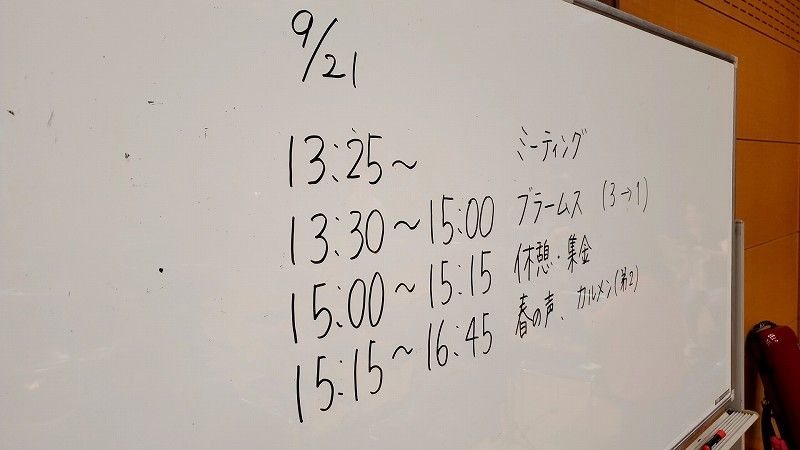 9/21
13:25～ ミーティング
13:30～15:00 ブラームス (3→1)
15:00～15:15 休憩・集金
15:15～16:45 春の声、カルメン(第2)